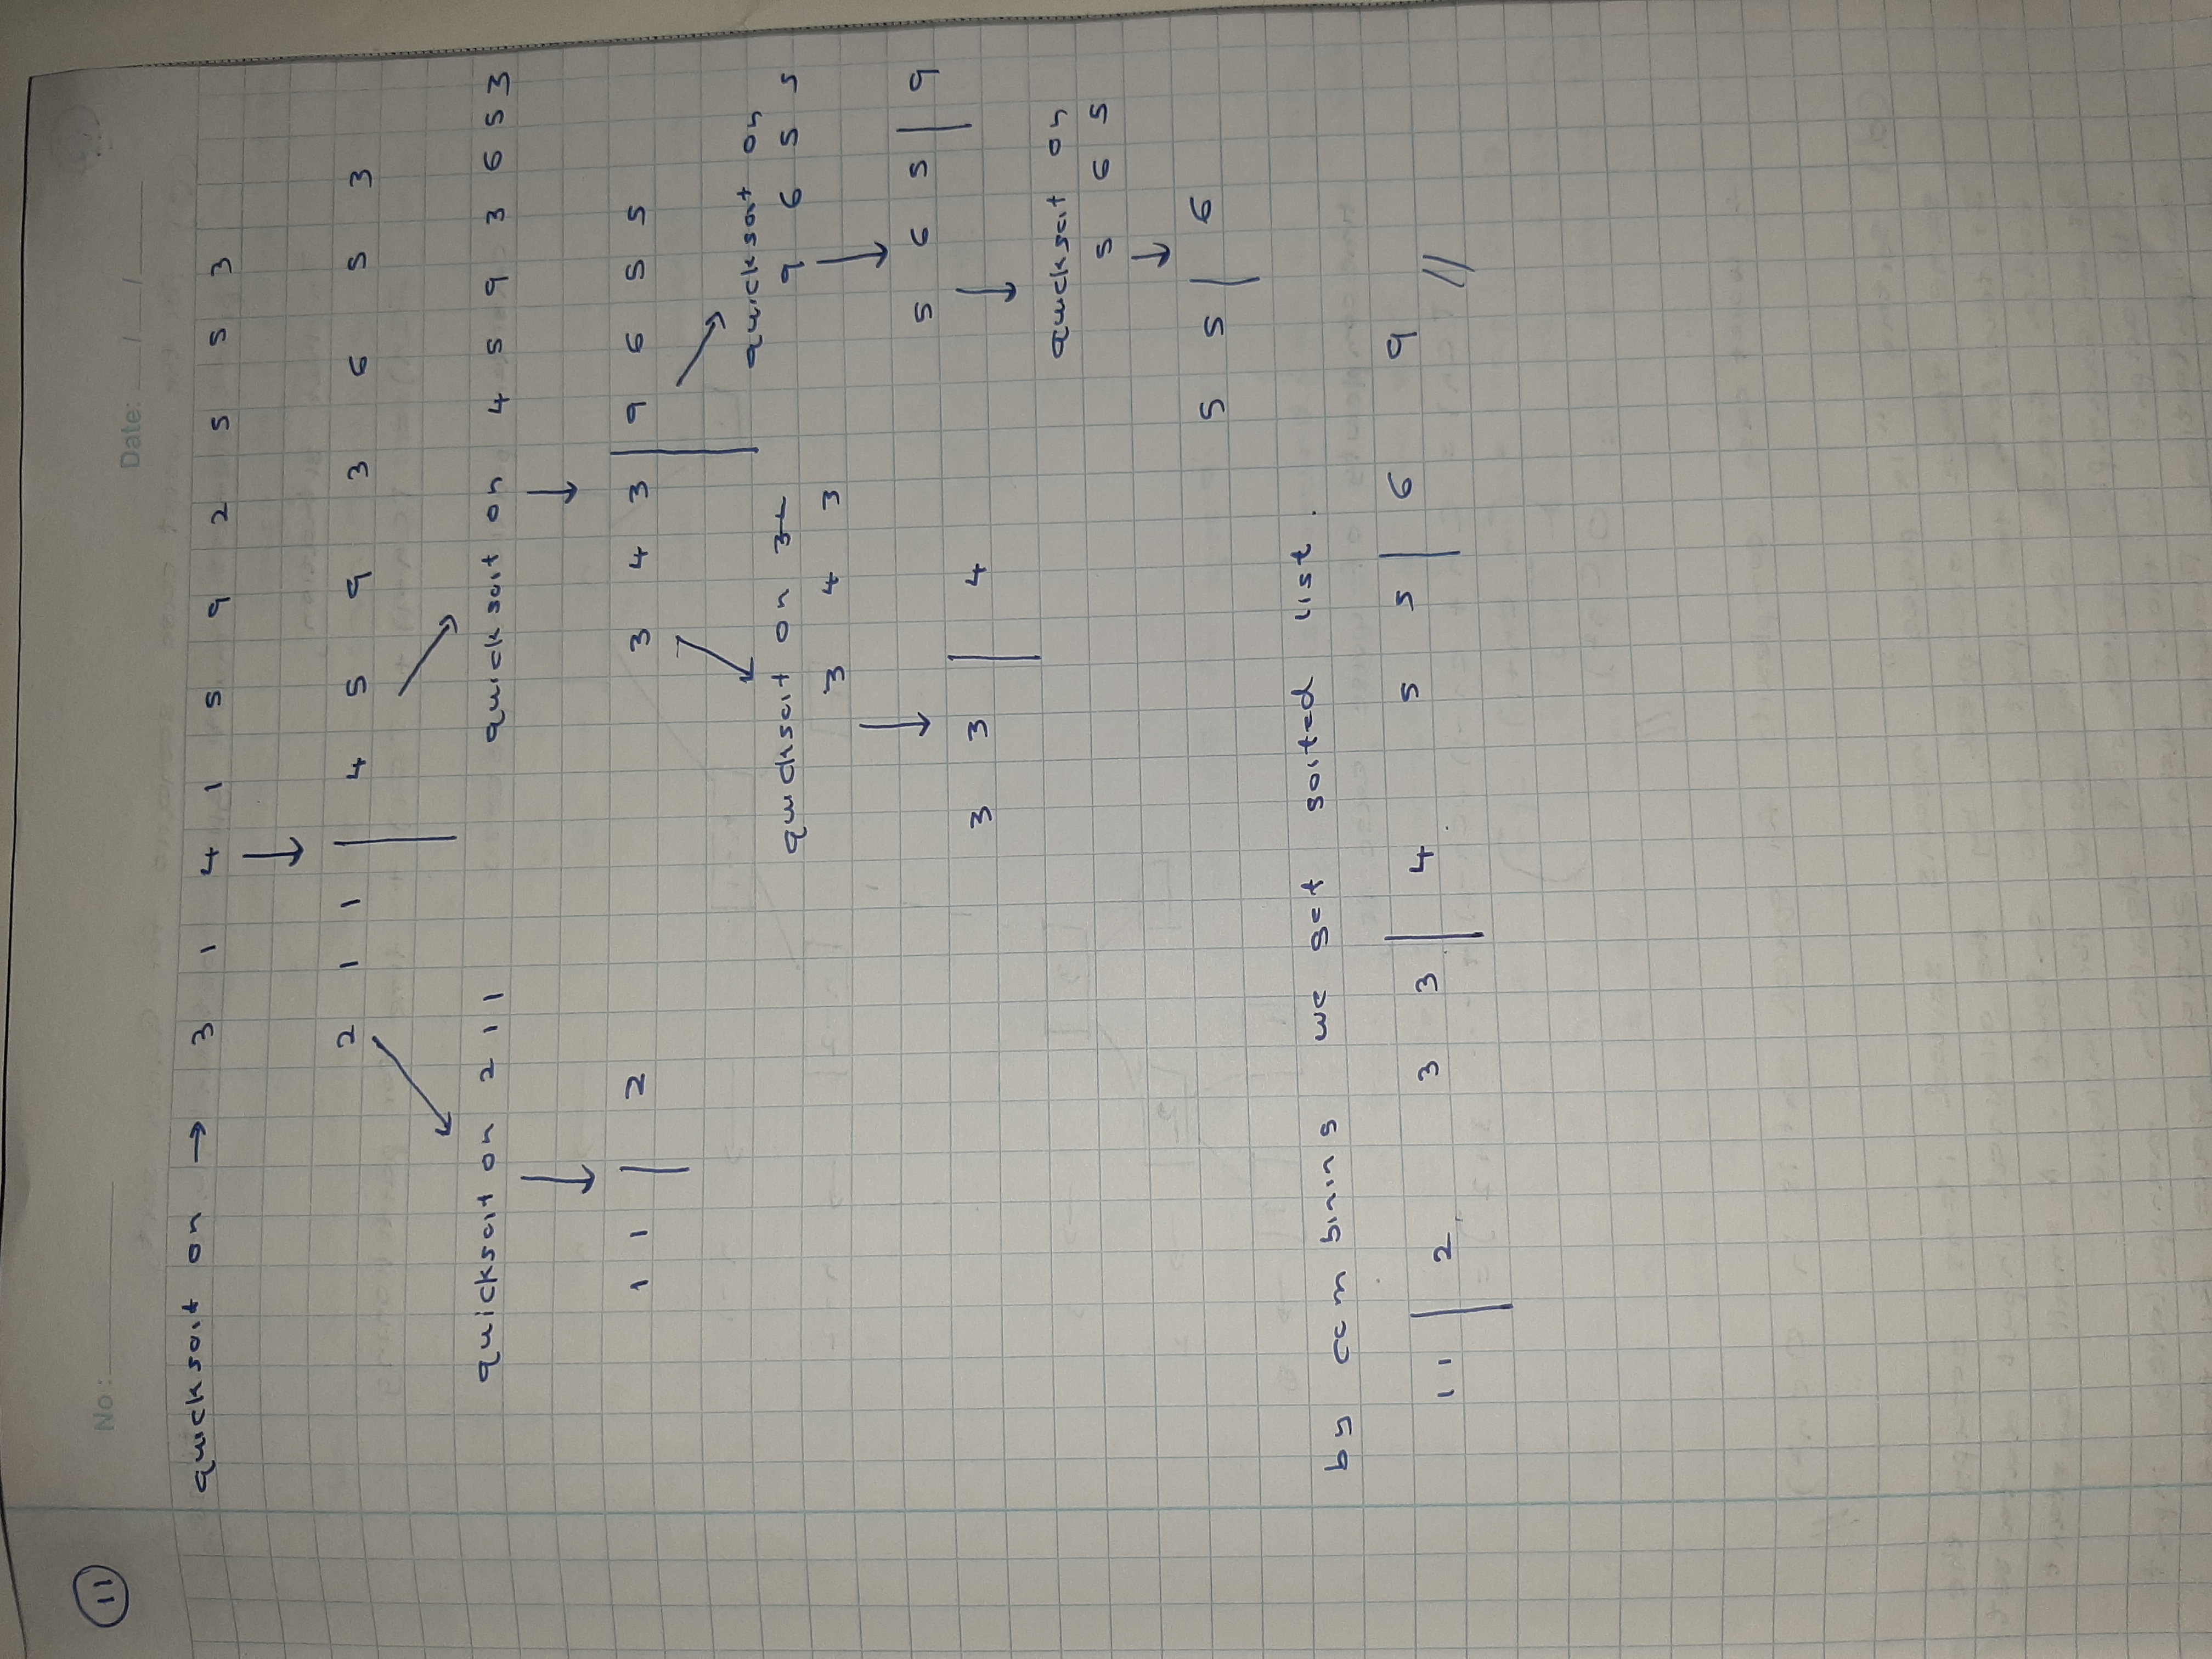 11
No :
Date: / /
quicksort on → 3 1 4 1 5 9 2 5 5 3
2 1 1 | 4 5 9 3 6 5 3
quicksort on 2 1 1
quicksort on 4 5 9 3 6 5 3
1 1 | 2
3 4 3 | 9 6 5 5
quicksort on
9 6 5 5
quicksort on
3 4 3
5 6 5 | 9
3 3 | 4
quicksort on
5 6 5
5 5 | 6
by combining we get sorted list.
1 1 | 2 3 3 | 4 5 5 | 6 9 //